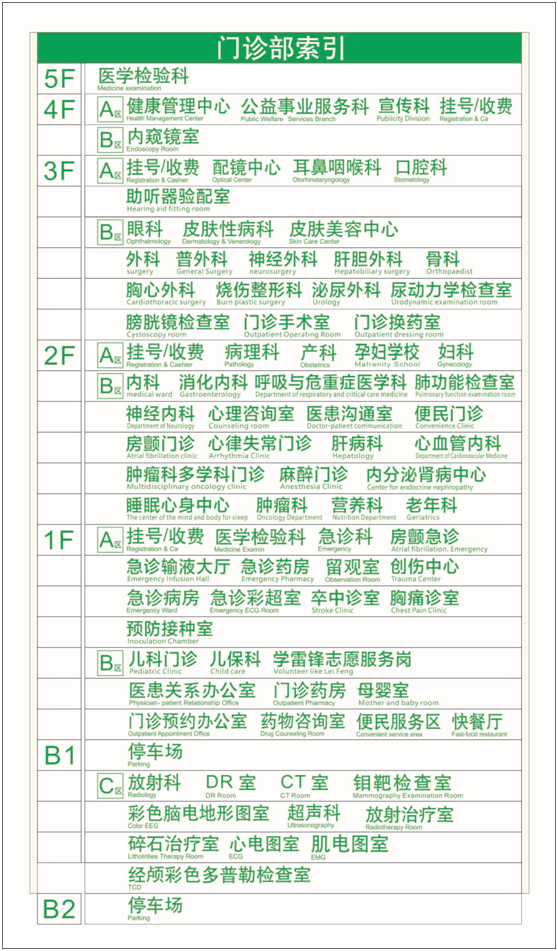 门诊部索引
5F 医学检验科
Medicine examination
4F A区 健康管理中心 公益事业服务科 宣传科 挂号/收费
Health Management Center Public Welfare Services Branch Publicity Division Registration & Ca
B区 内窥镜室
Endoscopy Room
3F A区 挂号/收费 配镜中心 耳鼻咽喉科 口腔科
Registration & Cashier Optical Center Otorhinolaryngology Stomatology
助听器验配室
Hearing aid fitting room
B区 眼科 皮肤性病科 皮肤美容中心
Ophthalmology Dermatology & Venerology Skin Care Center
外科 普外科 神经外科 肝胆外科 骨科
surgery General Surgery neurosurgery Hepatobiliary surgery Orthopaedist
胸心外科 烧伤整形科 泌尿外科 尿动力学检查室
Cardiothoracic surgery Burn plastic surgery Urology Urodynamic examination room
膀胱镜检查室 门诊手术室 门诊换药室
Cystoscopy room Outpatient Operating Room Outpatient dressing room
2F A区 挂号/收费 病理科 产科 孕妇学校 妇科
Registration & Cashier Pathology Obstetrics Matrenity School Gynecology
B区 内科 消化内科 呼吸与危重症医学科 肺功能检查室
medical ward Gastroenterology Department of respiratory and critical care medicine Pulmonary function examination room
神经内科 心理咨询室 医患沟通室 便民门诊
Department of Neurology Counseling room Doctor-patient communication Convenience Clinic
房颤门诊 心律失常门诊 肝病科 心血管内科
Atrial fibrillation clinic Arrhythmia Clinic Hepatology Department of Cardiovascular Medicine
肿瘤科多学科门诊 麻醉门诊 内分泌肾病中心
Multidisciplinary oncology clinic Anesthesia Clinic Center for endocrine nephropathy
睡眠心身中心 肿瘤科 营养科 老年科
The center of the mind and body for sleep Oncology Department Nutrition Department Geriatrics
1F A区 挂号/收费 医学检验科 急诊科 房颤急诊
Registration & Ca Medicine Examin Emergency Atrial fibrillation. Emergency
急诊输液大厅 急诊药房 留观室 创伤中心
Emergency Infusion Hall Emergency Pharmacy Observation Room Trauma Center
急诊病房 急诊彩超室 卒中诊室 胸痛诊室
Emergency Ward Emergency ECG Room Stroke Clinic Chest Pain Clinic
预防接种室
Inoculation Chamber
B区 儿科门诊 儿保科 学雷锋志愿服务岗
Pediatric Clinic Child care Volunteer like Lei Feng
医患关系办公室 门诊药房 母婴室
Physician- patient Relationship Office Outpatient Pharmacy Mother and baby room
门诊预约办公室 药物咨询室 便民服务区 快餐厅
Outpatient Appointment Office Drug Counseling Room Convenient service area Fast-food restaurant
B1 停车场
Parking
C区 放射科 DR 室 CT 室 钼靶检查室
Radiology DR Room CT Room Mammography Examination Room
彩色脑电地形图室 超声科 放射治疗室
Color EEG Ultrasonography Radiotherapy Room
碎石治疗室 心电图室 肌电图室
Lithotrities Therapy Room ECG EMG
经颅彩色多普勒检查室
TCD
B2 停车场
Parking